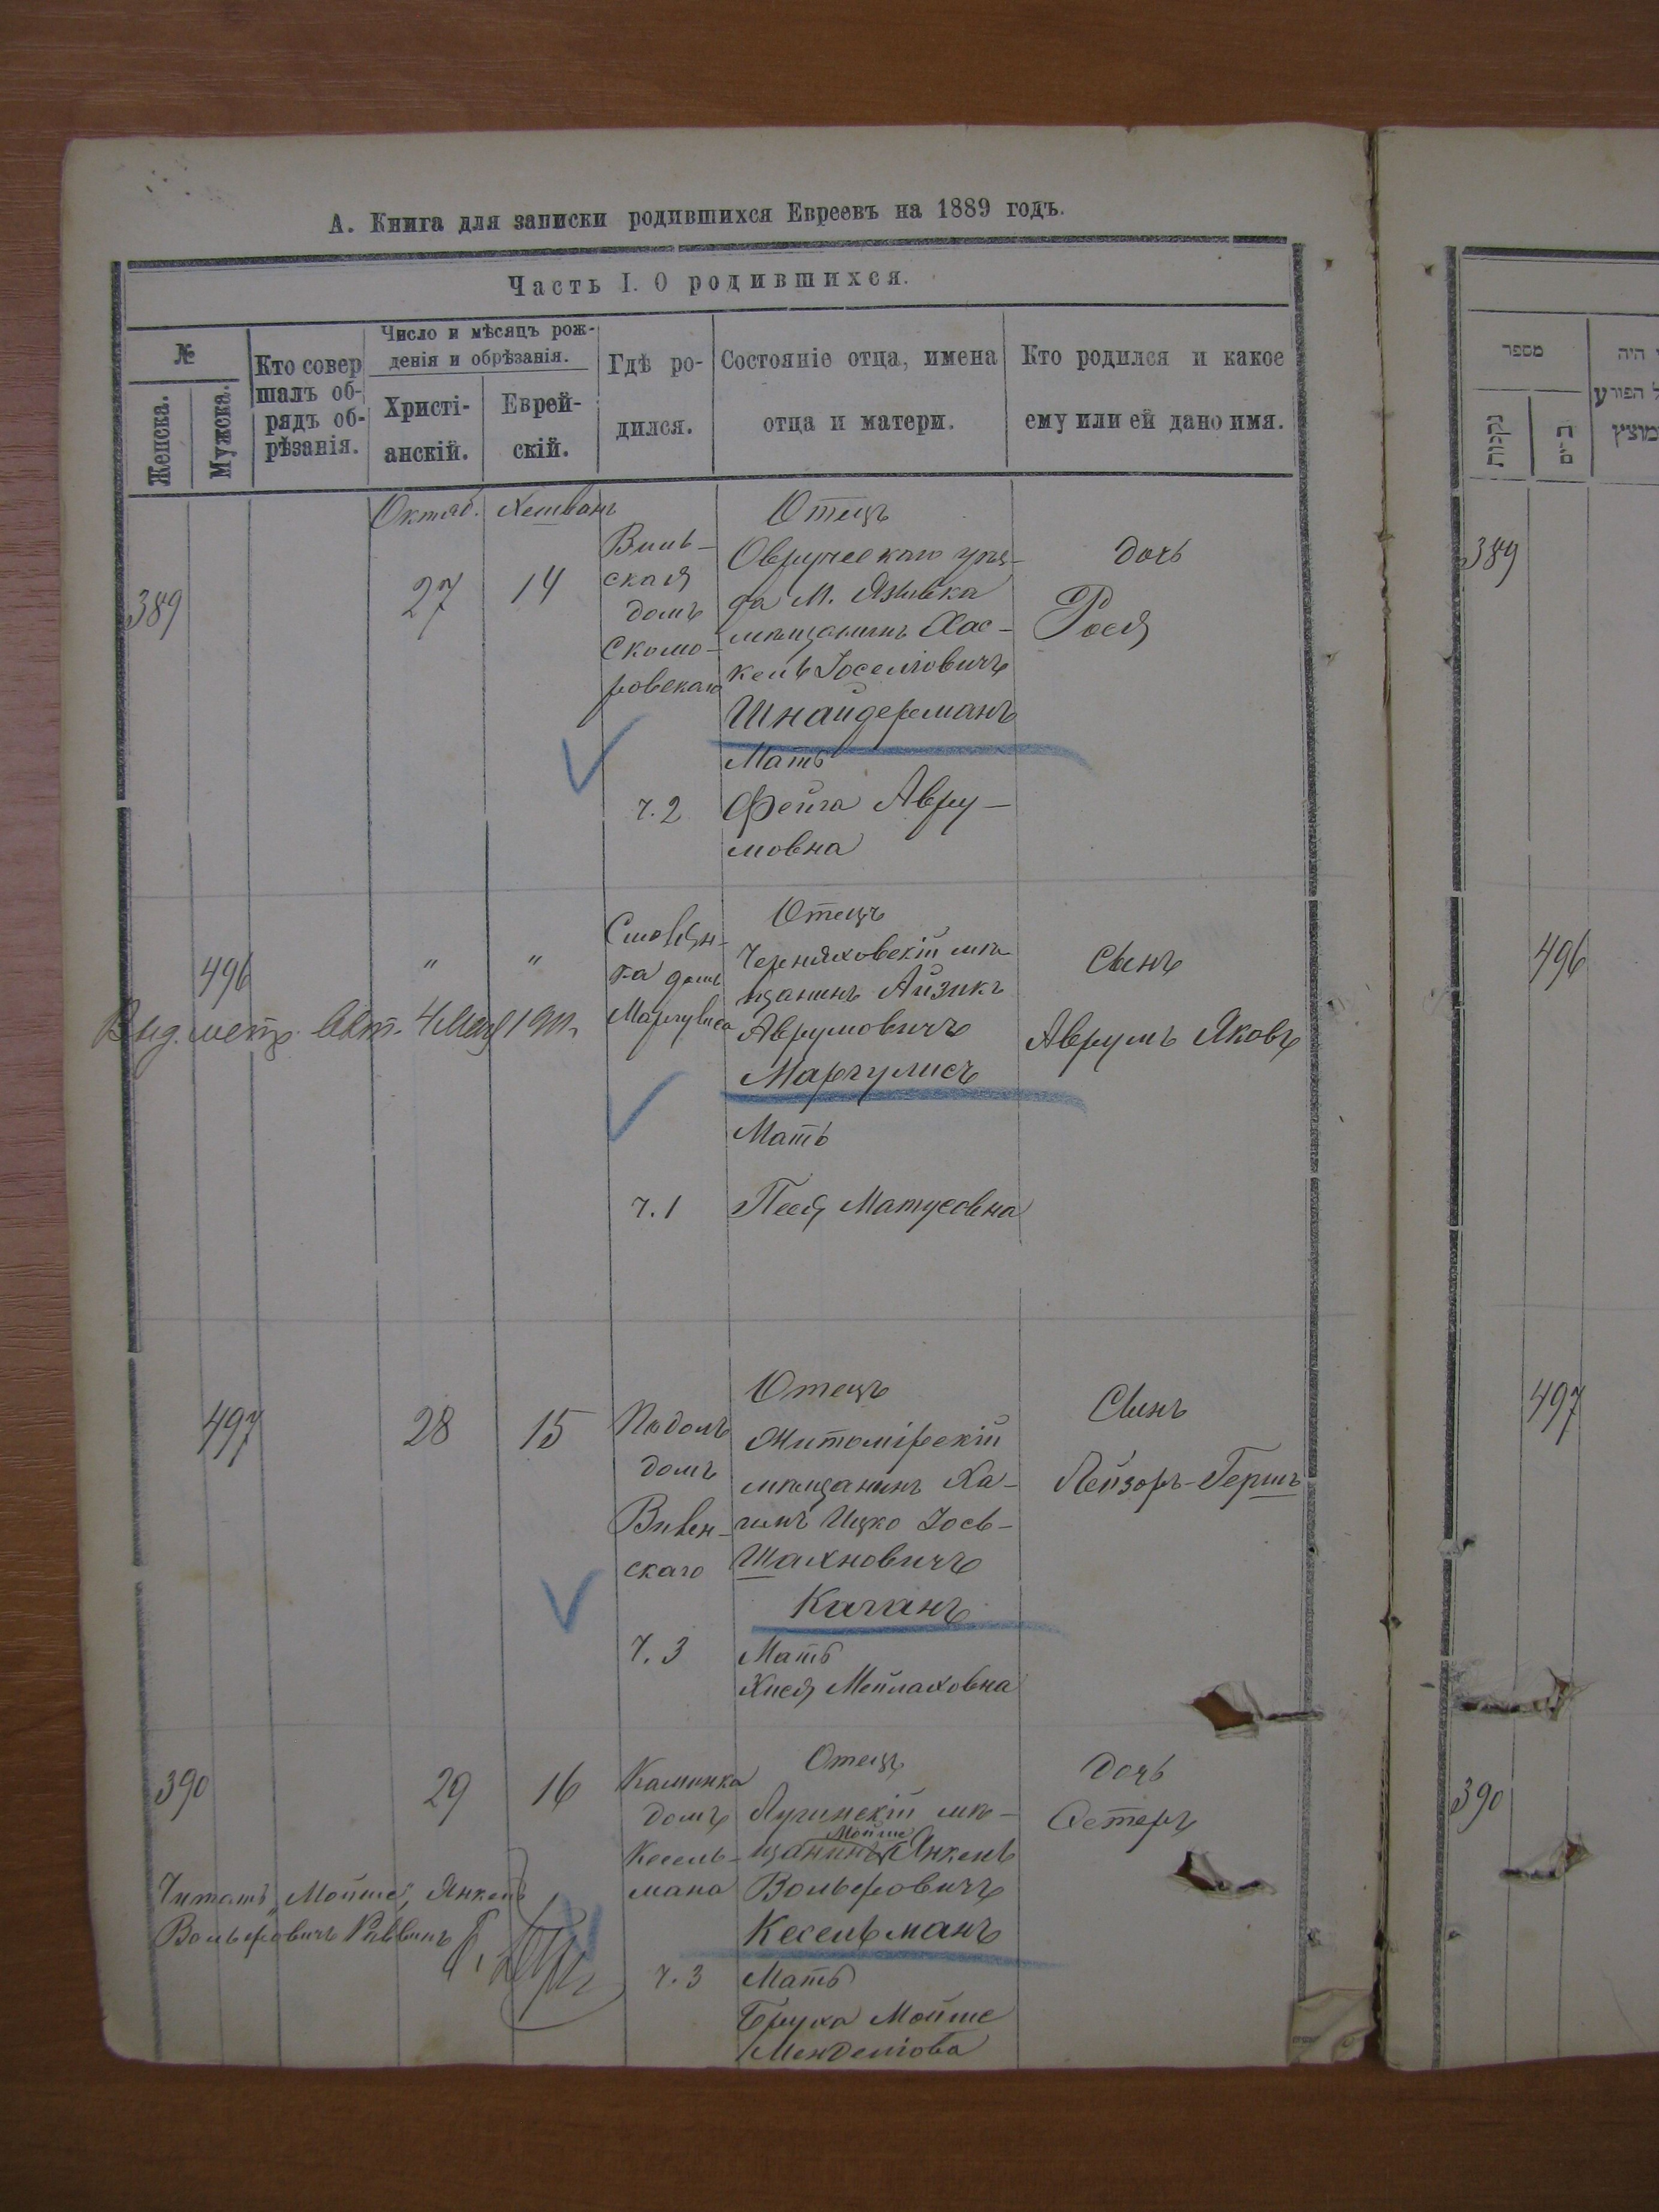 А. Книга для записки родившихся Евреевъ на 1889 годъ.
Часть I. О родившихся.
№
Женска.
Мужска.
Кто совер
шалъ об-
рядъ об-
рѣзанія.
Число и мѣсяцъ рож-
денія и обрѣзанія.
Христі-
анскій.
Еврей-
скій.
Гдѣ ро-
дился.
Состояніе отца, имена
отца и матери.
Кто родился и какое
ему или ей дано имя.
389
Октяб.
27
Хешванъ
14
Виль-
ская
домъ
Скомо-
ровскаго
ч. 2
Отецъ
Овручскаго уѣз-
да М.
мѣщанинъ Хас-
кель Іоселіовичъ
Шнайдерманъ
Мать
Фейга Авру-
мовна
дочь
Рося
496
"
"
домъ
Маргулиса
ч. 1
Отецъ
Черняховскій мѣ-
щанинъ Айзикъ
Аврумовичъ
Маргулисъ
Мать
Песя Матусовна
Сынъ
Аврумъ Яковъ
Выд. метр. 4 1911
497
28
15
Подолъ
домъ
скаго
ч. 3
Отецъ
Житомірскій
мѣщанинъ Ха-
имъ Ицко Іось-
Шахновичъ
Каганъ
Мать
Хися Мейлаховна
Сынъ
Лейзоръ-Гершъ
390
29
16
Каминка
домъ
Кесель-
мана
ч. 3
Отецъ
Лугинскій мѣ-
Мойше
щанинъ Янкель
Вольфовичъ
Кесельманъ
Мать
Бруха Мойше
Менделіова
дочь
Эстеръ
Читать „Мойше", Янкель
Вольфовичъ Раввинъ
מספר
נקבות
389
496
497
390